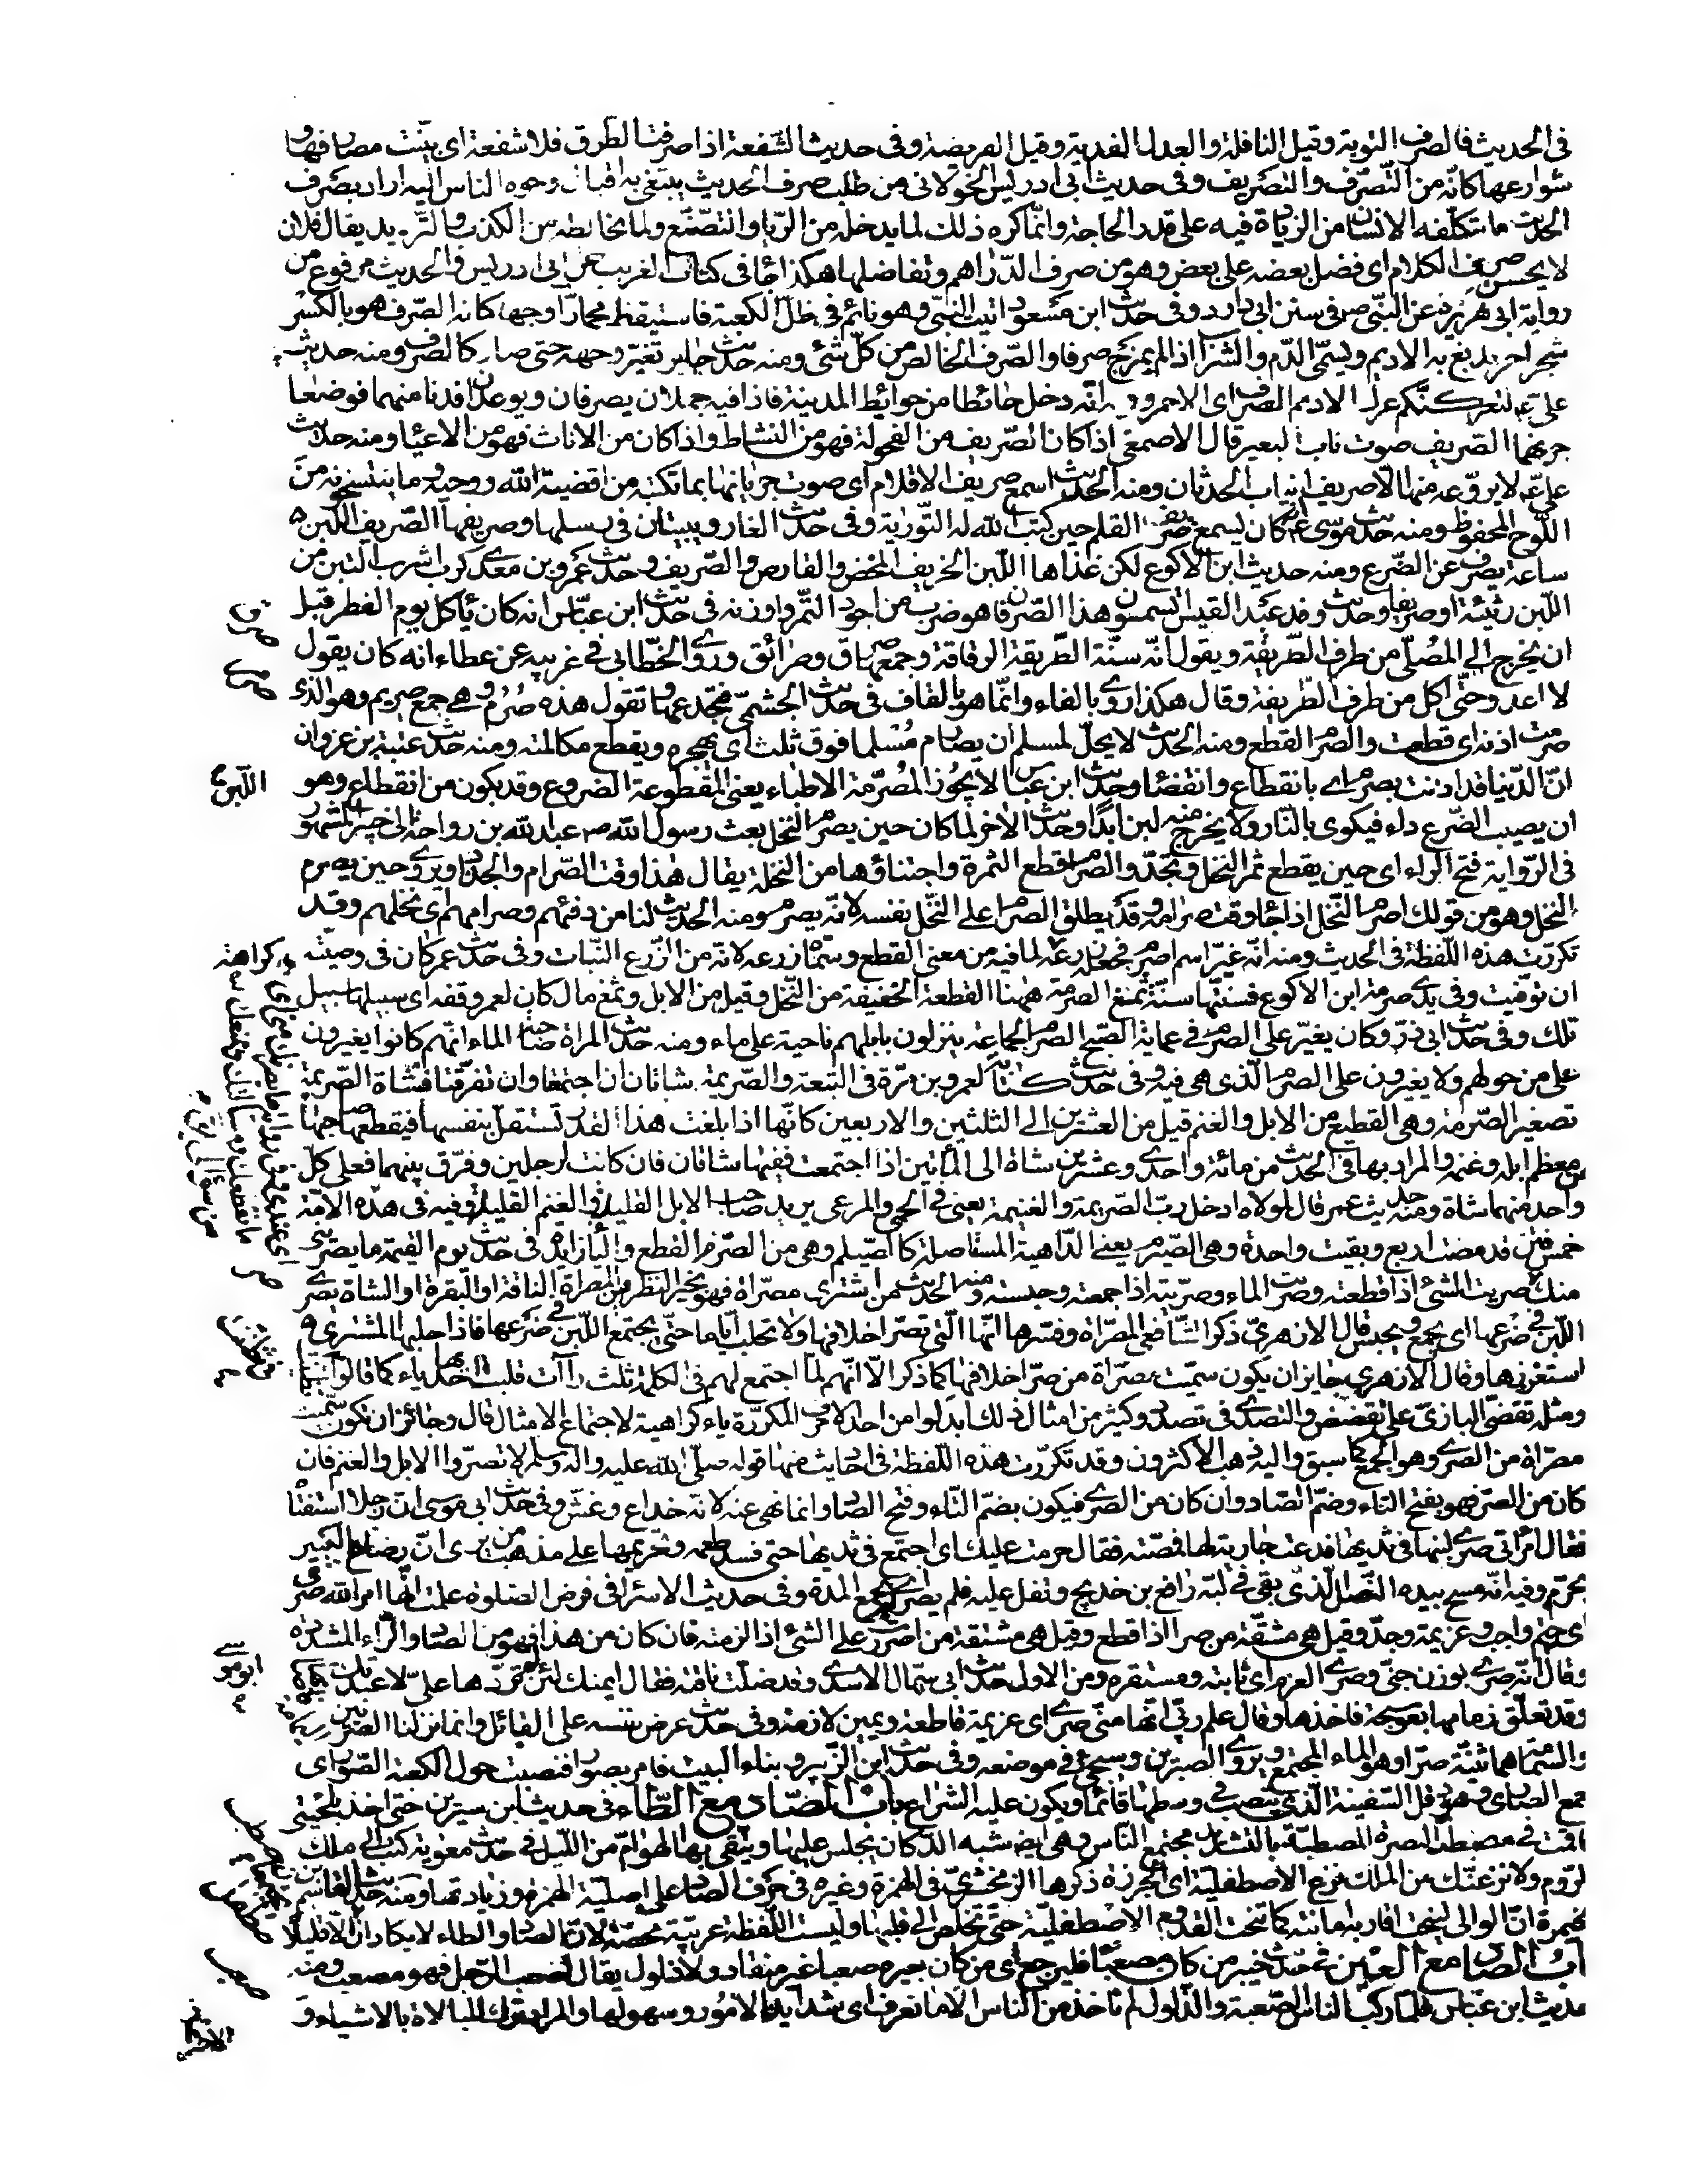 في الحديث فالصرف التوبة وقيل النافلة والعدل الفدية وقيل الفريضة وفي حديث الشفعة اذا صرفت الطرق فلا شفعة اى بينت مصارفها و
شوارعها كانه من التصرف والتصريف وفي حديث ابى ادريس الخولاني من طلب صرف الحديث يبتغى به اقبال وجوه الناس اليه اراد بصرف
الحديث ما يتكلفه الانسان من الزيادة فيه على قدر الحاجة وانما كره ذلك لما يدخله من الريا والتصنع ولما يخالطه من الكذب والتزيد يقال فلان
لا يحسن صرف الكلام اى فضل بعضه على بعض وهو من صرف الدراهم وتفاضلها هكذا جا فى كتاب الغريب عن ابى ادريس والحديث مرفوع من
رواية ابى هريرة عن النبى ص فى سنن ابى داود وفى حديث ابن مسعود اتيت النبى وهو نائم فى ظل الكعبة فاستيقظ محمارا وجهه كانه الصرف هو بالكسر
شجر احمر يدبغ به الاديم ويسمى الدم والشراب اذا لم يمزج صرفا والصرف الخالص من كل شئ ومنه حديث جابر تغير وجهه حتى صار كالصرف ومنه حديث
على ع لتعركنكم عرك الاديم الصرف اى الاحمر وفيه انه دخل حائطا من حوائط المدينة فاذا فيه جملان يصرفان ويوعدان فدنا منهما فوضعا
جرنهما الصريف صوت ناب البعير قال الاصمعى اذا كان الصريف من الفحولة فهو من النشاط واذا كان من الاناث فهو من الاعياء ومنه حديث
على ع لا يروعه منها الا صريف انياب الحدثان ومنه الحديث اسمع صريف الاقلام اى صوت جريانها بما تكتبه من اقضية الله ووحيه وما ينتسخونه من
اللوح المحفوظ ومنه حديث موسى ع انه كان يسمع صريف القلم حين كتب الله له التورية وفى حديث الغار ويبيتان فى رسلها وصريفها الصريف اللبن
ساعة يصرف عن الضرع ومنه حديث ابن الاكوع لكن غذاها اللبن الخريف المخض والقارص والصريف وحديث عمرو بن معدى كرب اشرب التبن من
اللبن رثيئة او صريفا وحديث وفد عبد القيس اتسمون هذا الصرفان هو ضرب من اجود التمر واوزنه فى حديث ابن عباس انه كان يأكل يوم الفطر قبل
ان يخرج الى المصلى من طرف الطريقة ويقول انه سنة الطريقة الرقاقة وجمعها صرق وصرائق وروى الخطابى فى غريبه عن عطاء انه كان يقول
لا اغدو حتى اكل من طرف الطريفة وقال هكذا روى بالفاء وانما هو بالقاف فى حديث الجشمى فتجدعها وتقول هذه صرم وهى جمع صريم وهو الذى
صرمت اذنه اى قطعت والصرم القطع ومنه الحديث لا يحل لمسلم ان يصارم مسلما فوق ثلث اى يهجره ويقطع مكالمته ومنه حديث عتبة بن غزوان
ان الدنيا قد اذنت بصرم اى بانقطاع وانقضاء وحديث ابن عباس لا يجوز المصرمة الاطباء يعنى المقطوعة الضروع وقد يكون من انقطاع وهو
ان يصيب الضرع داء فيكوى بالنار ولا يخرج منه لبن ابدا وحديث الاخر لما كان حين يصرم النخل بعث رسول الله ص عبد الله بن رواحة الى خيبر المشهور
فى الرواية فتح الراء اى حين يقطع ثمر النخل ويجد والصرام قطع الثمرة واجتناؤها من النخلة يقال هذا وقت الصرام والجداد ويروى حين يصرم
النخل وهو من قولك اصرم النخل اذا جا وقت صرامه وقد يطلق الصرام على النخل نفسه لانه يصرم ومنه الحديث لنا من دفئهم وصرامهم اى نخلهم وقد
تكررت هذه اللفظة فى الحديث ومنه انه غير اسم اصرم فجعله زرعة لما فيه من معنى القطع وسماه زرعة لانه من الزرع النبات وفى حديث عمر كان فى وصيته
ان توفيت وفى يدى صرمة ابن الاكوع فسنتها سنة ثمغ الصرمة ههنا القطعة الخفيفة من النخل وقيل من الابل وثمغ مال كان لعمر وقفه اى سبيلها سبيل
تلك وفى حديث ابى ذر وكان يغير على الصرم فى عماية الصبح الصرم الجماعة ينزلون بابلهم ناحية على ماء ومنه حديث المراة صاحبة الماء انهم كانوا يغيرون
على من حولهم ولا يغيرون على الصرم الذى هى فيه وفى حديث كتابه لعمرو بن مرة فى التيعة والصريمة شاتان ان اجتمعا وان تفرقتا فشاة الصريمة
تصغير الصرمة وهى القطيع من الابل والغنم قيل من العشرين الى الثلثين والاربعين كانها اذا بلغت هذا القدر تستقل بنفسها فيقطعها صاحبها
من معظم ابله وغنمه والمراد بها فى الحديث من مائة واحدى وعشرين شاة الى المأتين اذا اجتمعت ففيها شاتان فان كانت لرجلين وفرق بينهما فعلى كل
واحد منهما شاة ومنه حديث عمر قال لمولاه ادخل رب الصريمة والغنيمة يعنى فى الحمى والمرعى يريد صاحب الابل القليلة والغنم القليلة وفيه فى هذه الامة
خمس فتن قد مضت اربع وبقيت واحدة وهى الصيرم يعنى الداهية المستاصلة كالصيلم وهى من الصرم القطع والياء زايدة فى حديث يوم القيمة ما يصرينى
منك صريت الشئ اذا قطعته وصريت الماء وصريته اذا جمعته وحبسته ومنه الحديث من اشترى مصراة فهو بخير النظرين المصراة الناقة او البقرة او الشاة يصرى
اللبن فى ضرعها اى يجمع ويحبس قال الازهرى ذكر الشافعى المصراة وفسرها انها التى تصر اخلافها ولا تحلب اياما حتى يجتمع اللبن فى ضرعها فاذا حلبها المشترى
استغزرها وقال الازهرى جايز ان يكون سميت مصراة من صر اخلافها كما ذكر الا انهم لما اجتمع لهم فى الكلمة ثلث راآت قلبت احديها ياء كما قالوا
ومثله تقضى البازى على تقضض والتصدى فى تصدد وكثير من امثال ذلك ابدلوا من احد الاحرف المكررة ياء كراهية لاجتماع الامثال قال وجائز ان تكون سميت
مصراة من الصرى وهو الجمع كما سبق واليه ذهب الاكثرون وقد تكررت هذه اللفظة فى احاديث منها قوله صلى الله عليه واله وسلم لا تصروا الابل والغنم فان
كان من الصر فهو بفتح التاء وضم الصاد وان كان من الصرى فيكون بضم التاء وفتح الصاد وانما نهى عنه لانه خداع وغش وفى حديث ابى موسى ان رجلا استفتاه
فقال امراتى صرى لبنها فى ثديها فدعت جارية لها فمصته فقال حرمت عليك اى اجتمع فى ثديها حتى فسد طعمه وتحريمها على مذهب من يرى ان رضاع الكبير
يحرم وفيه انه مسح بيده النصل الذى بقى فى لبة رافع بن خديج وتفل عليه فلم يصر اى لم يجمع المدة وفى حديث الاسراء فى فرض الصلوة علمت انها امر الله صرى
اى حتم واجب وعزيمة وجد وقيل هى مشتقة من صرى اذا قطع وقيل هى مشتقة من اصررت على الشئ اذا لزمته فان كان من هذا فهو من الصاد والراء المشددة
وقال انه صرى بوزن جنى وصرى العزم اى ثابته ومستقره ومن الاول حديث ابى سمال الاسدى وقد ضلت ناقته فقال ايمنك لئن لم تردها على لا عبدتك
وقد تعلق زمامها بعوسجة فاخذها وقال علم ربى انها منى صرى اى عزيمة قاطعة ويمين لازمة وفى حديث عرض نفسه على القبائل وانما نزلنا الصريين
والسمامة هما تثنية صرى وهو الماء المجتمع ويروى الصيرين وسيجئ فى موضعه وفى حديث ابن الزبير وبناء البيت فامر بصوار فنصبت حول الكعبة الصوارى
جمع الصارى وهو دقل السفينة الذى ينصب فى وسطها قائما ويكون عليه الشراع باب الصاد مع الطاء فى حديث ابن سيرين حتى اخذ بلحيتى
اقمت فى مصطبة البصرة المصطبة بالتشديد مجتمع الناس وهى ايضا شبه الدكان يجلس عليها ويتقى بها الهوام من الليل فى حديث معوية كتب الى ملك
لروم ولا نزعنك من الملك نزع الاصطفلينة اى الجزرة ذكرها الزمخشرى فى الهمزة وغيره فى حرف الصاد على اصلية الهمزة وزيادتها ومنه حديث القاسم بن
مخيمرة ان الوالى لينحت اقاربه امانته كما تنحت القدوم الاصطفلينة حتى تخلص الى قلبها وليست اللفظة عربية محضة لان الصاد والطاء لا يكادان الا قليلا
باب الصاد مع العين فى حديث خيبر من كان مصعبا فليرجع اى من كان بعيره صعبا غير منقاد ولا ذلول يقال اصعب الرجل فهو مصعب ومنه
حديث ابن عباس فلما ركب الناس الصعبة والذلول لم ناخذ من الناس الا ما نعرف اى شدايد الامور وسهولها والمراد ترك المبالاة بالاشياء و
صرق
صرم
اللبن
ابو موسى
صطب
صعب